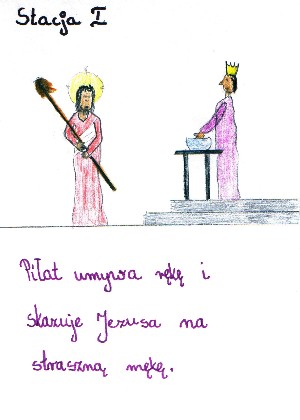 Stacja I
Piłat umywa rękę i
skazuje Jezusa na
straszną mękę.